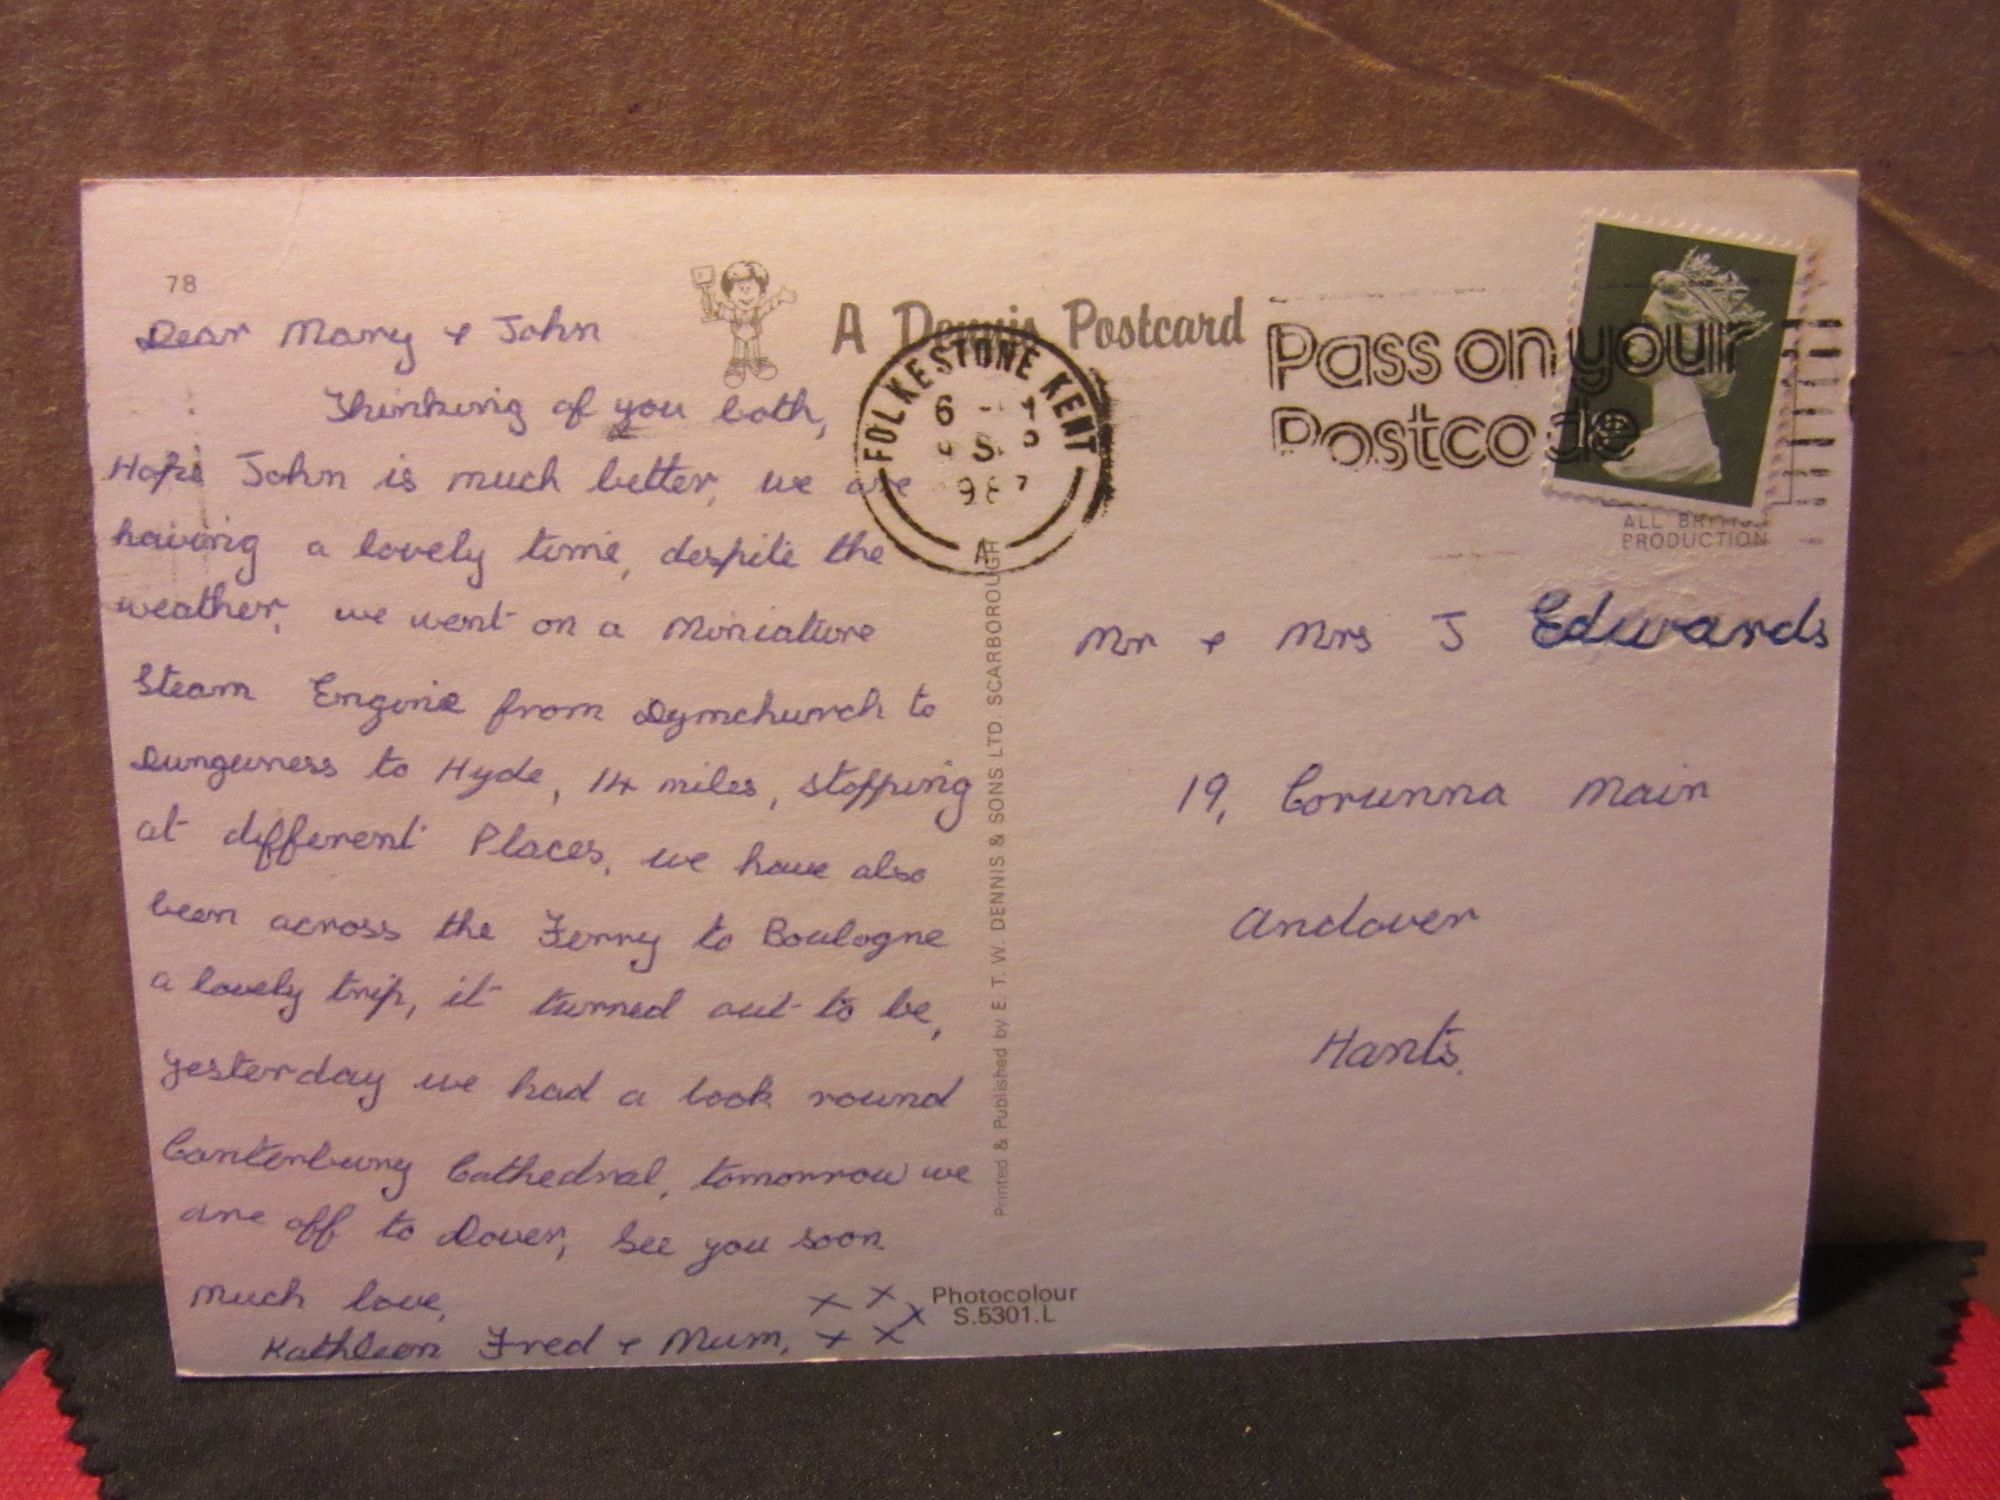 78
A Dennis Postcard
FOLKESTONE KENT
A
Pass on your
Postcode
ALL BRITISH
PRODUCTION
Dear Mary + John
Thinking of you both,
Hope John is much better, we are
having a lovely time, despite the
weather, we went on a Miniature
Steam Engine from Dymchurch to
Dungeness to Hyde, 14 miles, stopping
at different Places, we have also
been across the Ferry to Boulogne
a lovely trip, it turned out to be,
yesterday we had a look round
Canterbury Cathedral, tomorrow we
are off to Dover, See you soon
Much love,
Kathleen Fred + Mum, x x x x x
Printed & Published by E. T. W. DENNIS & SONS LTD SCARBOROUGH
Photocolour
S.5301.L
Mr + Mrs J Edwards
19, Corunna Main
Andover
Hants.